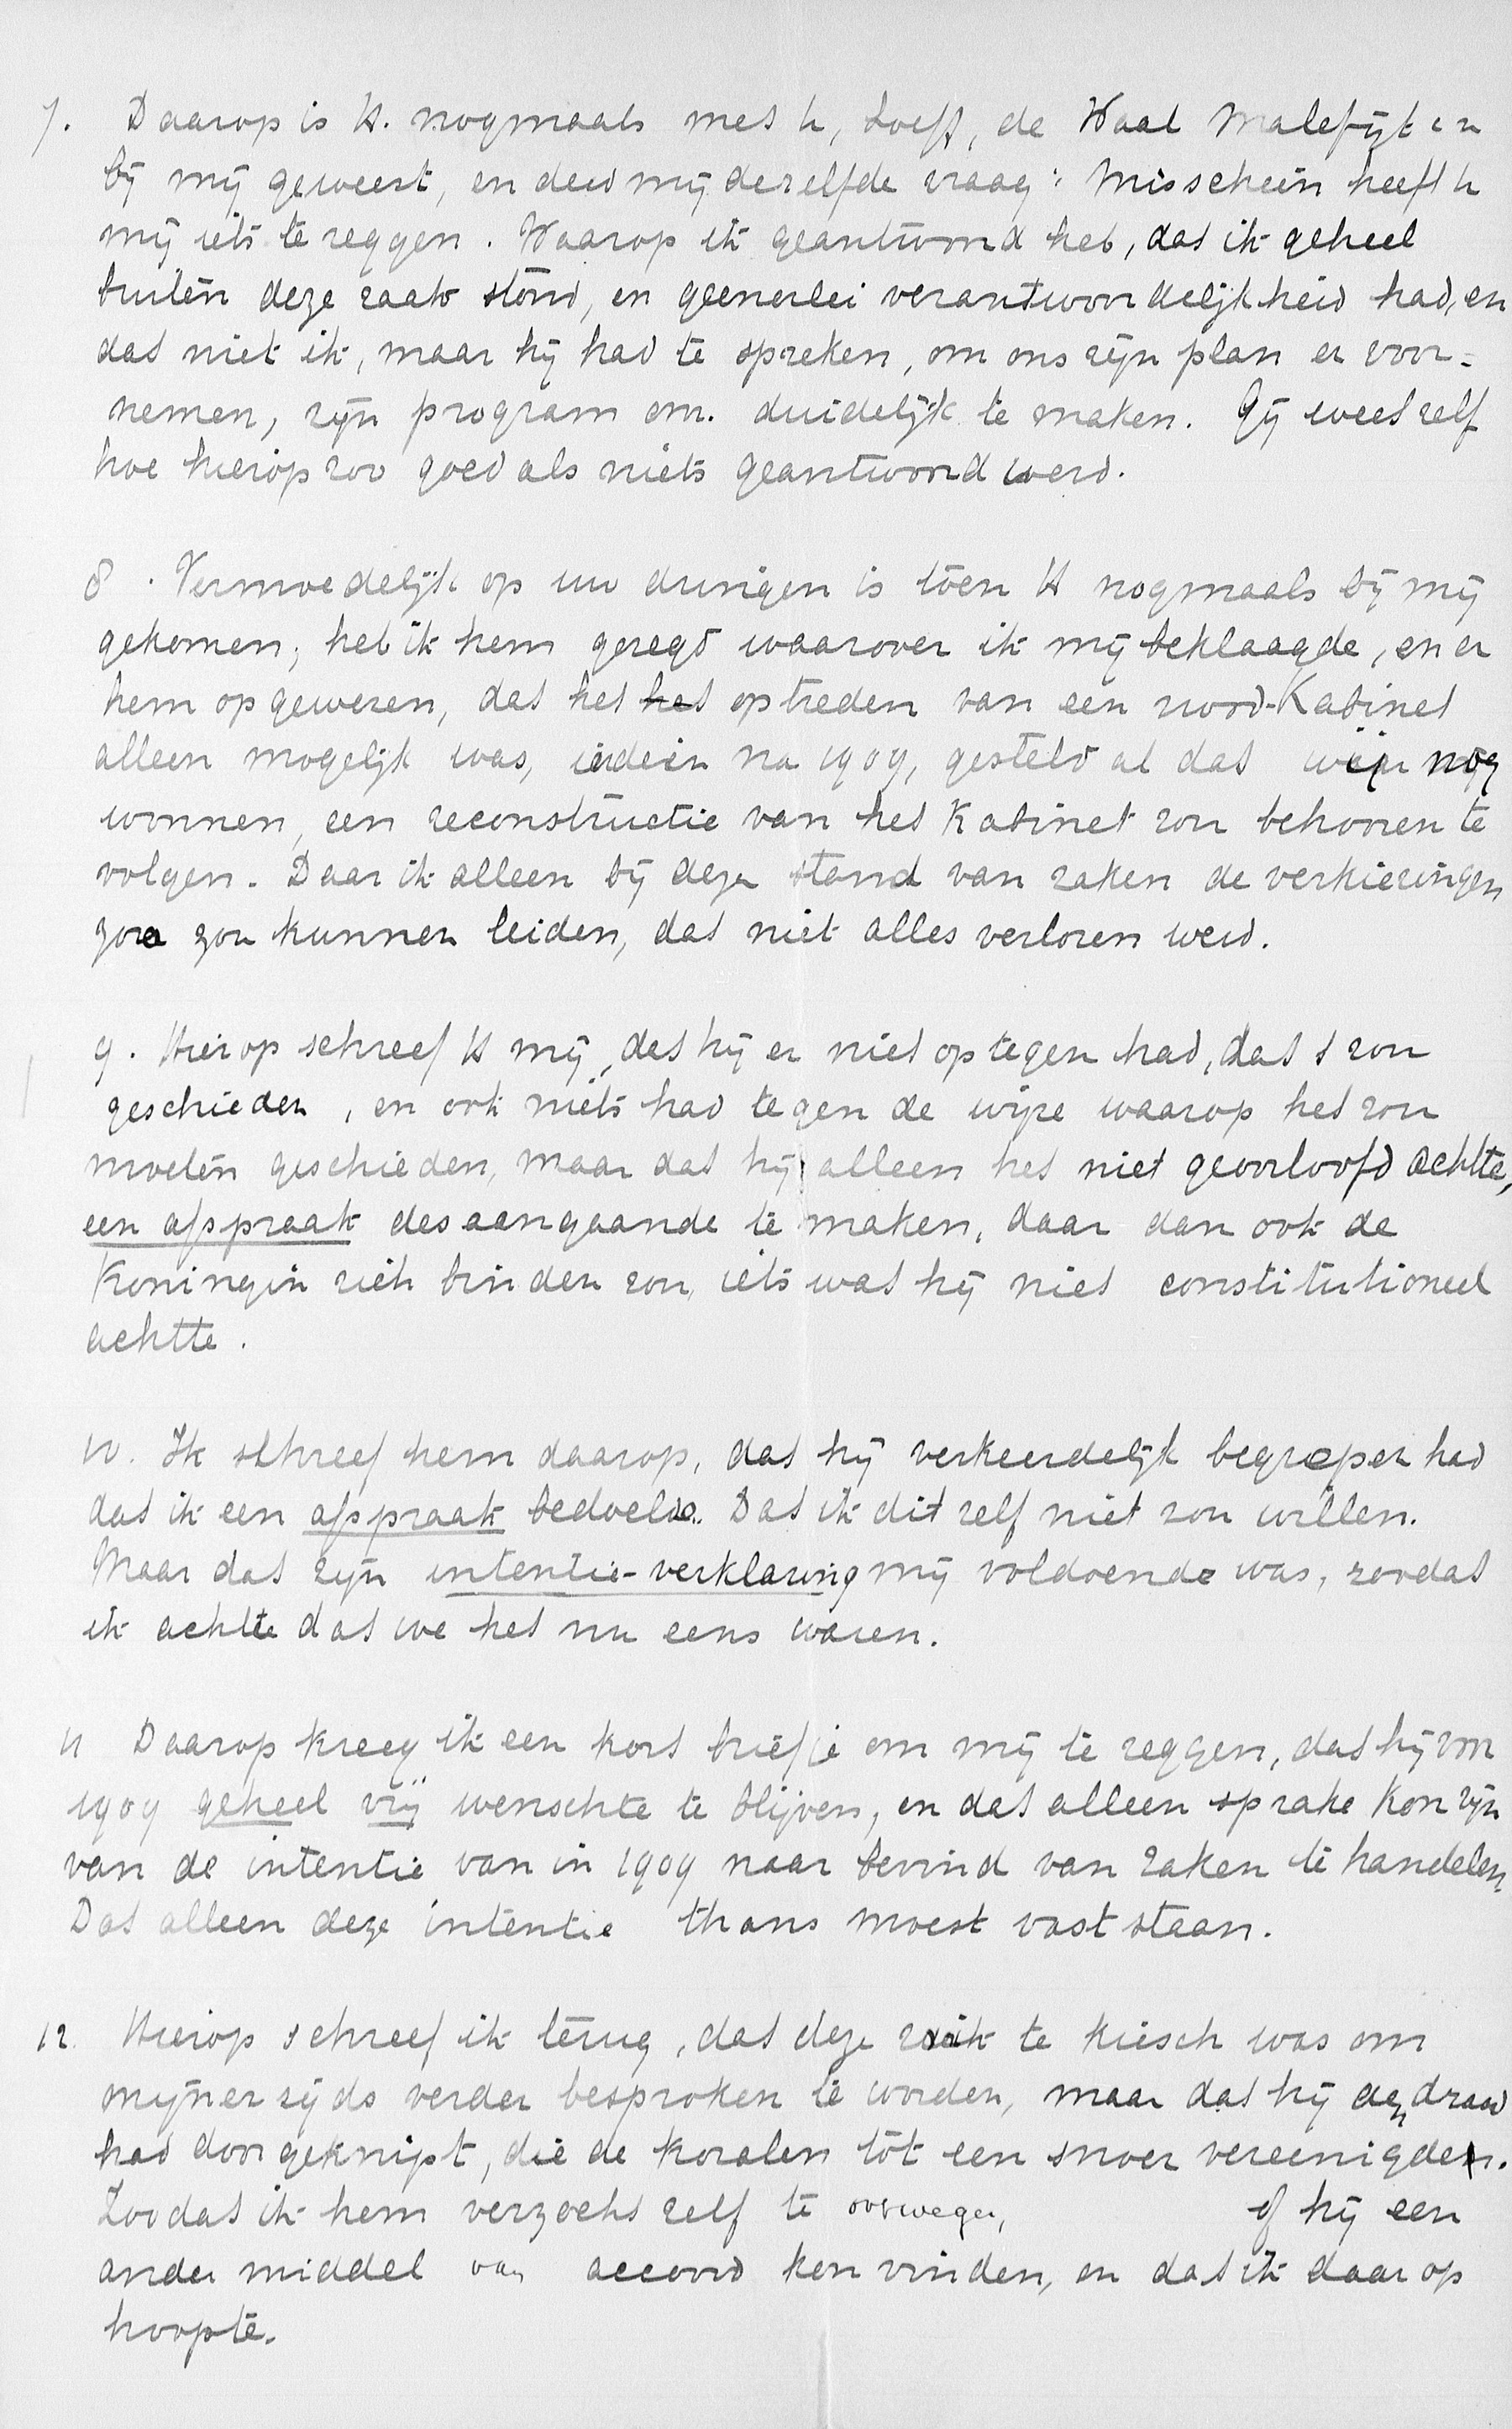 7. Daarop is H. nogmaals met u, Loeff, de Waal Malefijt en
bij mij geweest, en deed mij dezelfde vraag: Misschien heeft u
mij iets te zeggen. Waarop ik geantwoord heb, dat ik geheel
buiten deze zaak stond, en geenerlei verantwoordelijkheid had, en
dat niet ik, maar hij had te spreken, om ons zijn plan en voor-
nemen, zijn program om. duidelijk te maken. Gij weet zelf
hoe hierop zoo goed als niets geantwoord werd.
8. Vermoedelijk op uw dringen is toen H nogmaals bij mij
gekomen; heb ik hem gezegd waarover ik mij beklaagde, en er
hem op gewezen, dat het het optreden van een nood-Kabinet
alleen mogelijk was, indien na 1909, gesteld al dat wij nog
wonnen, een reconstructie van het Kabinet zou behooren te
volgen. Daar ik alleen bij dezen stand van zaken de verkiezingen
zoo zou kunnen leiden, dat niet alles verloren werd.
9. Hierop schreef H mij, dat hij er niet op tegen had, dat 't zou
geschieden, en ook niets had tegen de wijze waarop het zou
moeten geschieden, maar dat hij alleen het niet geoorloofd achtte,
een afspraak desaangaande te maken, daar dan ook de
Koningin zich binden zou, iets wat hij niet constitutioneel
achtte.
10. Ik schreef hem daarop, dat hij verkeerdelijk begrepen had
dat ik een afspraak bedoelde. Dat ik dit zelf niet zou willen.
Maar dat zijn intentie-verklaring mij voldoende was, zoodat
ik achtte dat we het nu eens waren.
11 Daarop kreeg ik een kort briefje om mij te zeggen, dat hij voor
1909 geheel vrij wenschte te blijven, en dat alleen sprake kon zijn
van de intentie van in 1909 naar bevind van zaken te handelen.
Dat alleen deze intentie thans moest vast staan.
12. Hierop schreef ik terug, dat deze zaak te kiesch was om
mijnerzijds verder besproken te worden, maar dat hij den draad
had doorgeknipt, die de koralen tot een snoer vereenigden.
Zoodat ik hem verzocht zelf te overwegen, of hij een
ander middel van accoord kon vinden, en dat ik daarop
hoopte.